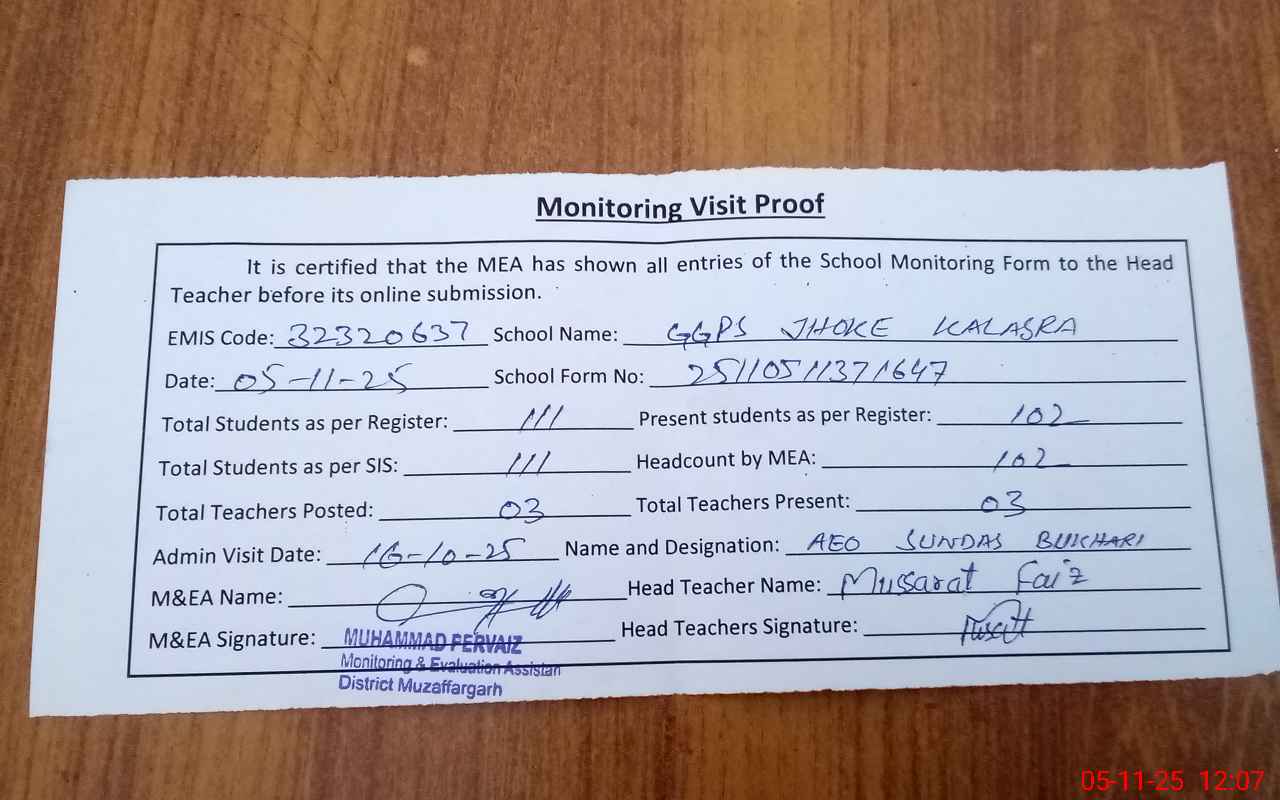 Monitoring Visit Proof
It is certified that the MEA has shown all entries of the School Monitoring Form to the Head
Teacher before its online submission.
EMIS Code: 32320637 School Name: GGPS JHOKE KALASRA
Date: 05-11-25 School Form No: 25110511371647
Total Students as per Register: 111 Present students as per Register: 102
Total Students as per SIS: 111 Headcount by MEA: 102
Total Teachers Posted: 03 Total Teachers Present: 03
Admin Visit Date: 16-10-25 Name and Designation: AEO SUNDAS BUKHARI
M&EA Name: Head Teacher Name: Mussarat Faiz
M&EA Signature: Head Teachers Signature:
MUHAMMAD PERVAIZ
Monitoring & Evaluation Assistan
District Muzaffargarh
05-11-25 12:07